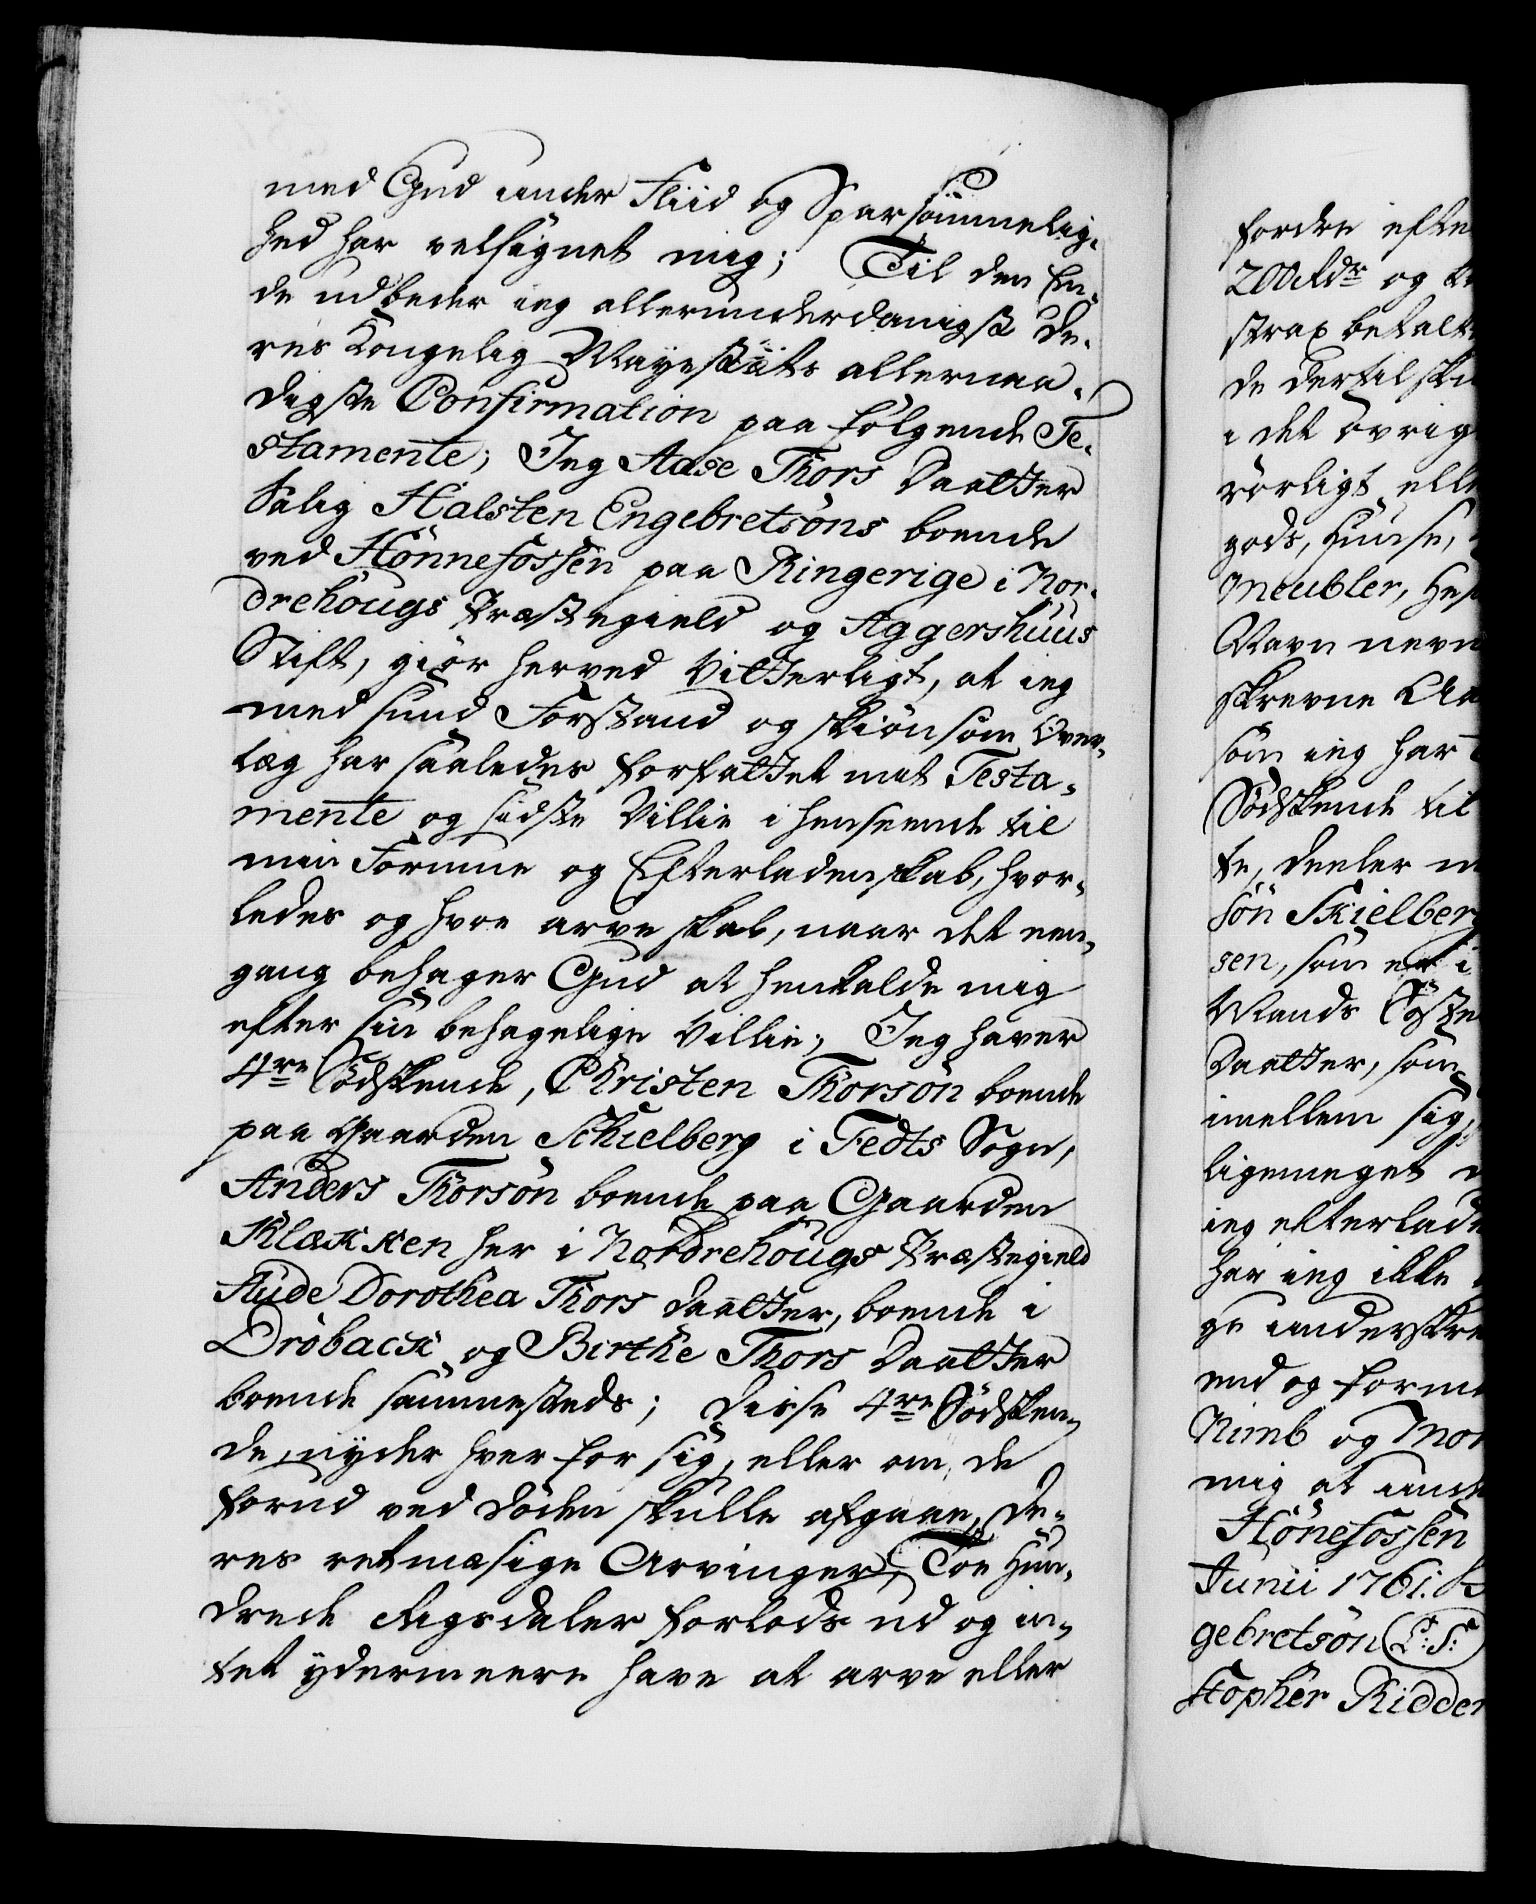 med Gud under Fliid og Sparsommelig-
hed har velsignet mig; Til den En-
de udbeder ieg allerunderdanigst De-
res Kongelig Mayestæts allernaa-
digste Confirmation paa følgende Te-
stamente; Jeg Aase Thors Daatter
Salig Halsten Engebretsøns boende
ved Hønnefossen paa Ringerige i Nor-
drehougs Præstegield og Aggershuus
Stift, giør herved vitterligt, at ieg
med sund Forstand og skiønsom Over-
læg har saaledes forfattet mit Testa-
mente og sidste Villie i henseende til
min Formue og Efterladenskab, hvor-
ledes og hvor arve skal, naar det een-
gang behager Gud at henkalde mig
efter sin behagelige Villie; Jeg haver
4re Sødskende, Christen Thorsøn boende
paa Gaarden Schielberg i Fedts Sogn,
Anders Thorsøn boende paa Gaarden
Klækken her i Nordrehougs Præstegield
Aude Dorothea Thors daatter, boende i
Drøback og Birthe Thors Daatter
boende sammesteds; Disse 4re Sødsken-
de, nyder hver for sig, eller om de
forud ved døden skulle afgaae, De-
res retmæsige Arvinger, Toe Hun-
drede Rigsdaler forlods ud og in-
tet ydermeere have at arve eller
fordre efte
200 Rdr og
strax betalt
de dertil
i det øvrig
rørligt elle
gods, Huuse,
Meubler,
Navn nevn
skrevne
som ieg har
Sødskende til
te, deeler
søn Skielberg
sen, som er i
Mands
Daatter, som
imellem sig,
ligemeget
ieg efterlade
har ieg ikke
ge underskre
end og forme
Nimb og Mor
mig at unde
Hønefossen
Junii 1761.
gebretsøn (L:S:)
stopher Ridder